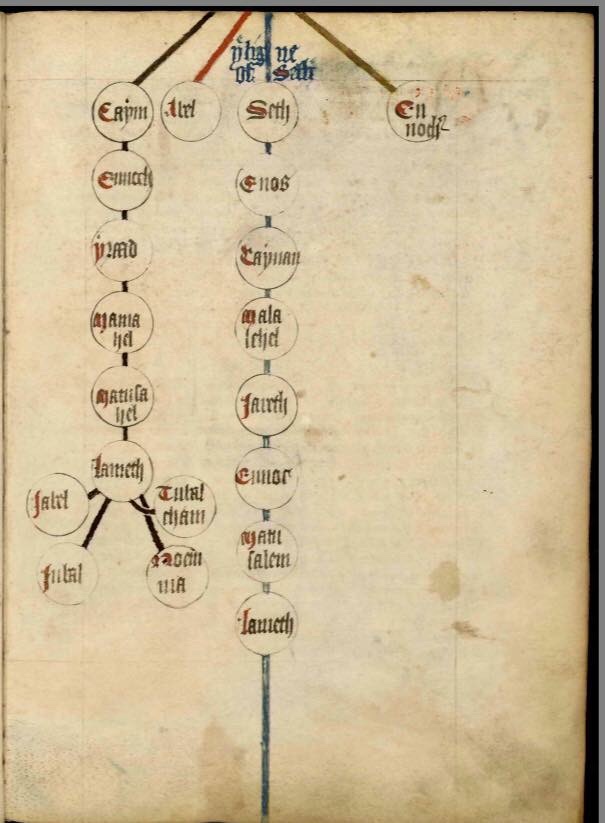 ẏ lig ne
of Seth
Caẏm
Abel
Seth
En
noch
Ennoch
Enos
ẏraad
Caẏnan
Mania
hel
Mala
lehel
Matusa
hel
Jareth
Lameth
Ennoc
Jabel
Tubal
cham
Matu
salem
Jubal
Noem
ma
Lameth